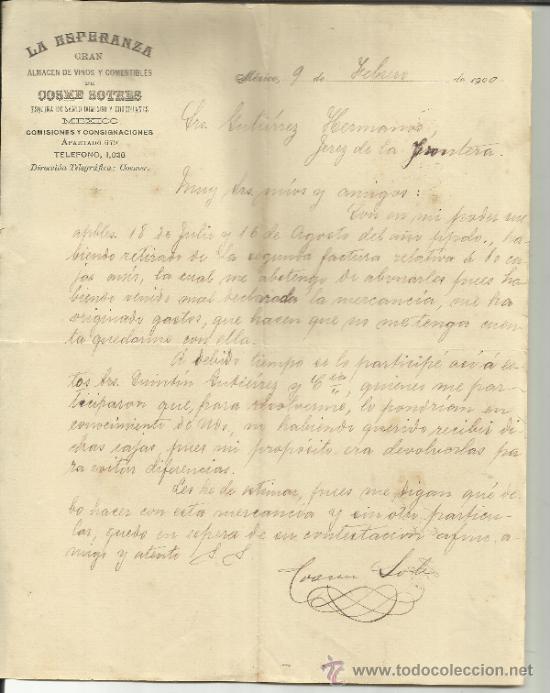 LA ESPERANZA
GRAN
ALMACEN DE VINOS Y COMESTIBLES
DE
COSME SOTRES
ESQUINA DE SANTO DOMINGO Y
MEXICO
COMISIONES Y CONSIGNACIONES
APARTADO
TELEFONO, 1,036
Dirección Telegráfica: Cosmer.
México, 9 de Febrero de 1900
Sres. Gutiérrez Hermanos,
Jerez de la Frontera.
Muy Srs. míos y amigos:
Son en mi poder sus
apbles. 18 de Julio y 16 de Agosto del año ppdo., ha-
biendo retirado de la segunda factura relativa a 10 ca-
jas anís, la cual me abstengo de abonarles pues ha-
biendo venido mal declarada la mercancía, me ha
originado gastos, que hacen que no me tenga cuen-
ta quedarme con ella.
A debido tiempo se lo participé así á es-
tos Srs. Quintín Gutiérrez y Cía, quienes me par-
ticiparon que, para resolverme, lo pondrían en
conocimiento de Uds, no habiendo querido recibir di-
chas cajas, pues mi propósito era devolverlas pa-
ra evitar diferencias.
Les he de estimar, pues me digan qué de-
bo hacer con esta mercancía y sin otro particu-
lar, quedo en espera de su contestación afmo. a-
migo y atento S S
Cosme Sotres
www.todocoleccion.net